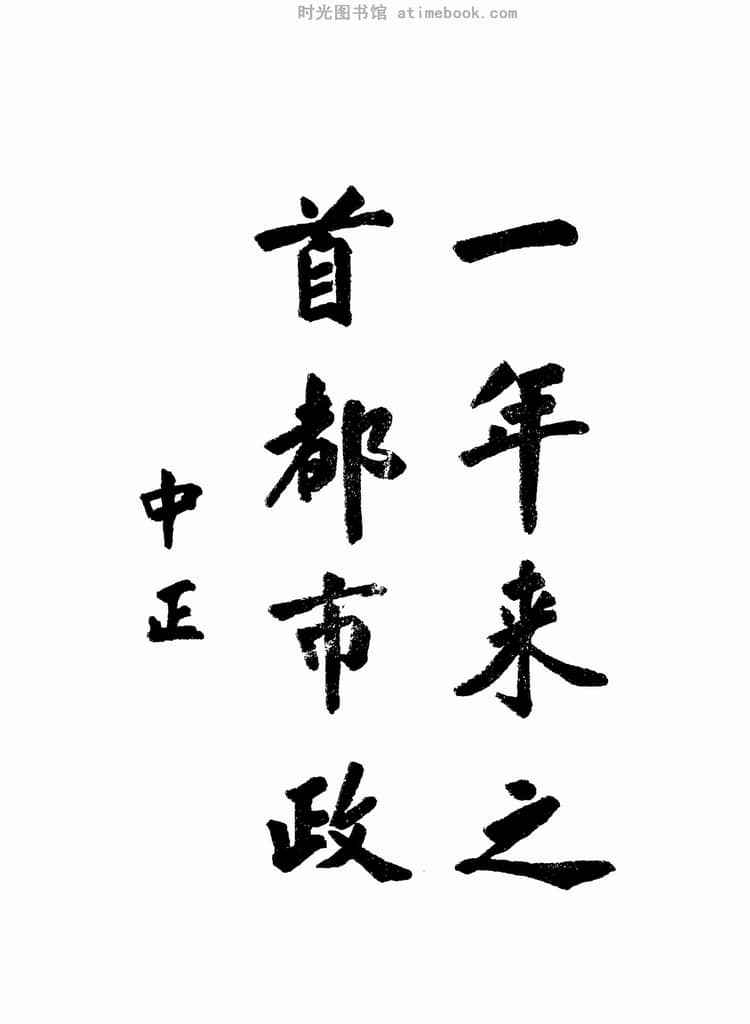 时光图书馆 atimebook.com
一年来之
首都市政
中正